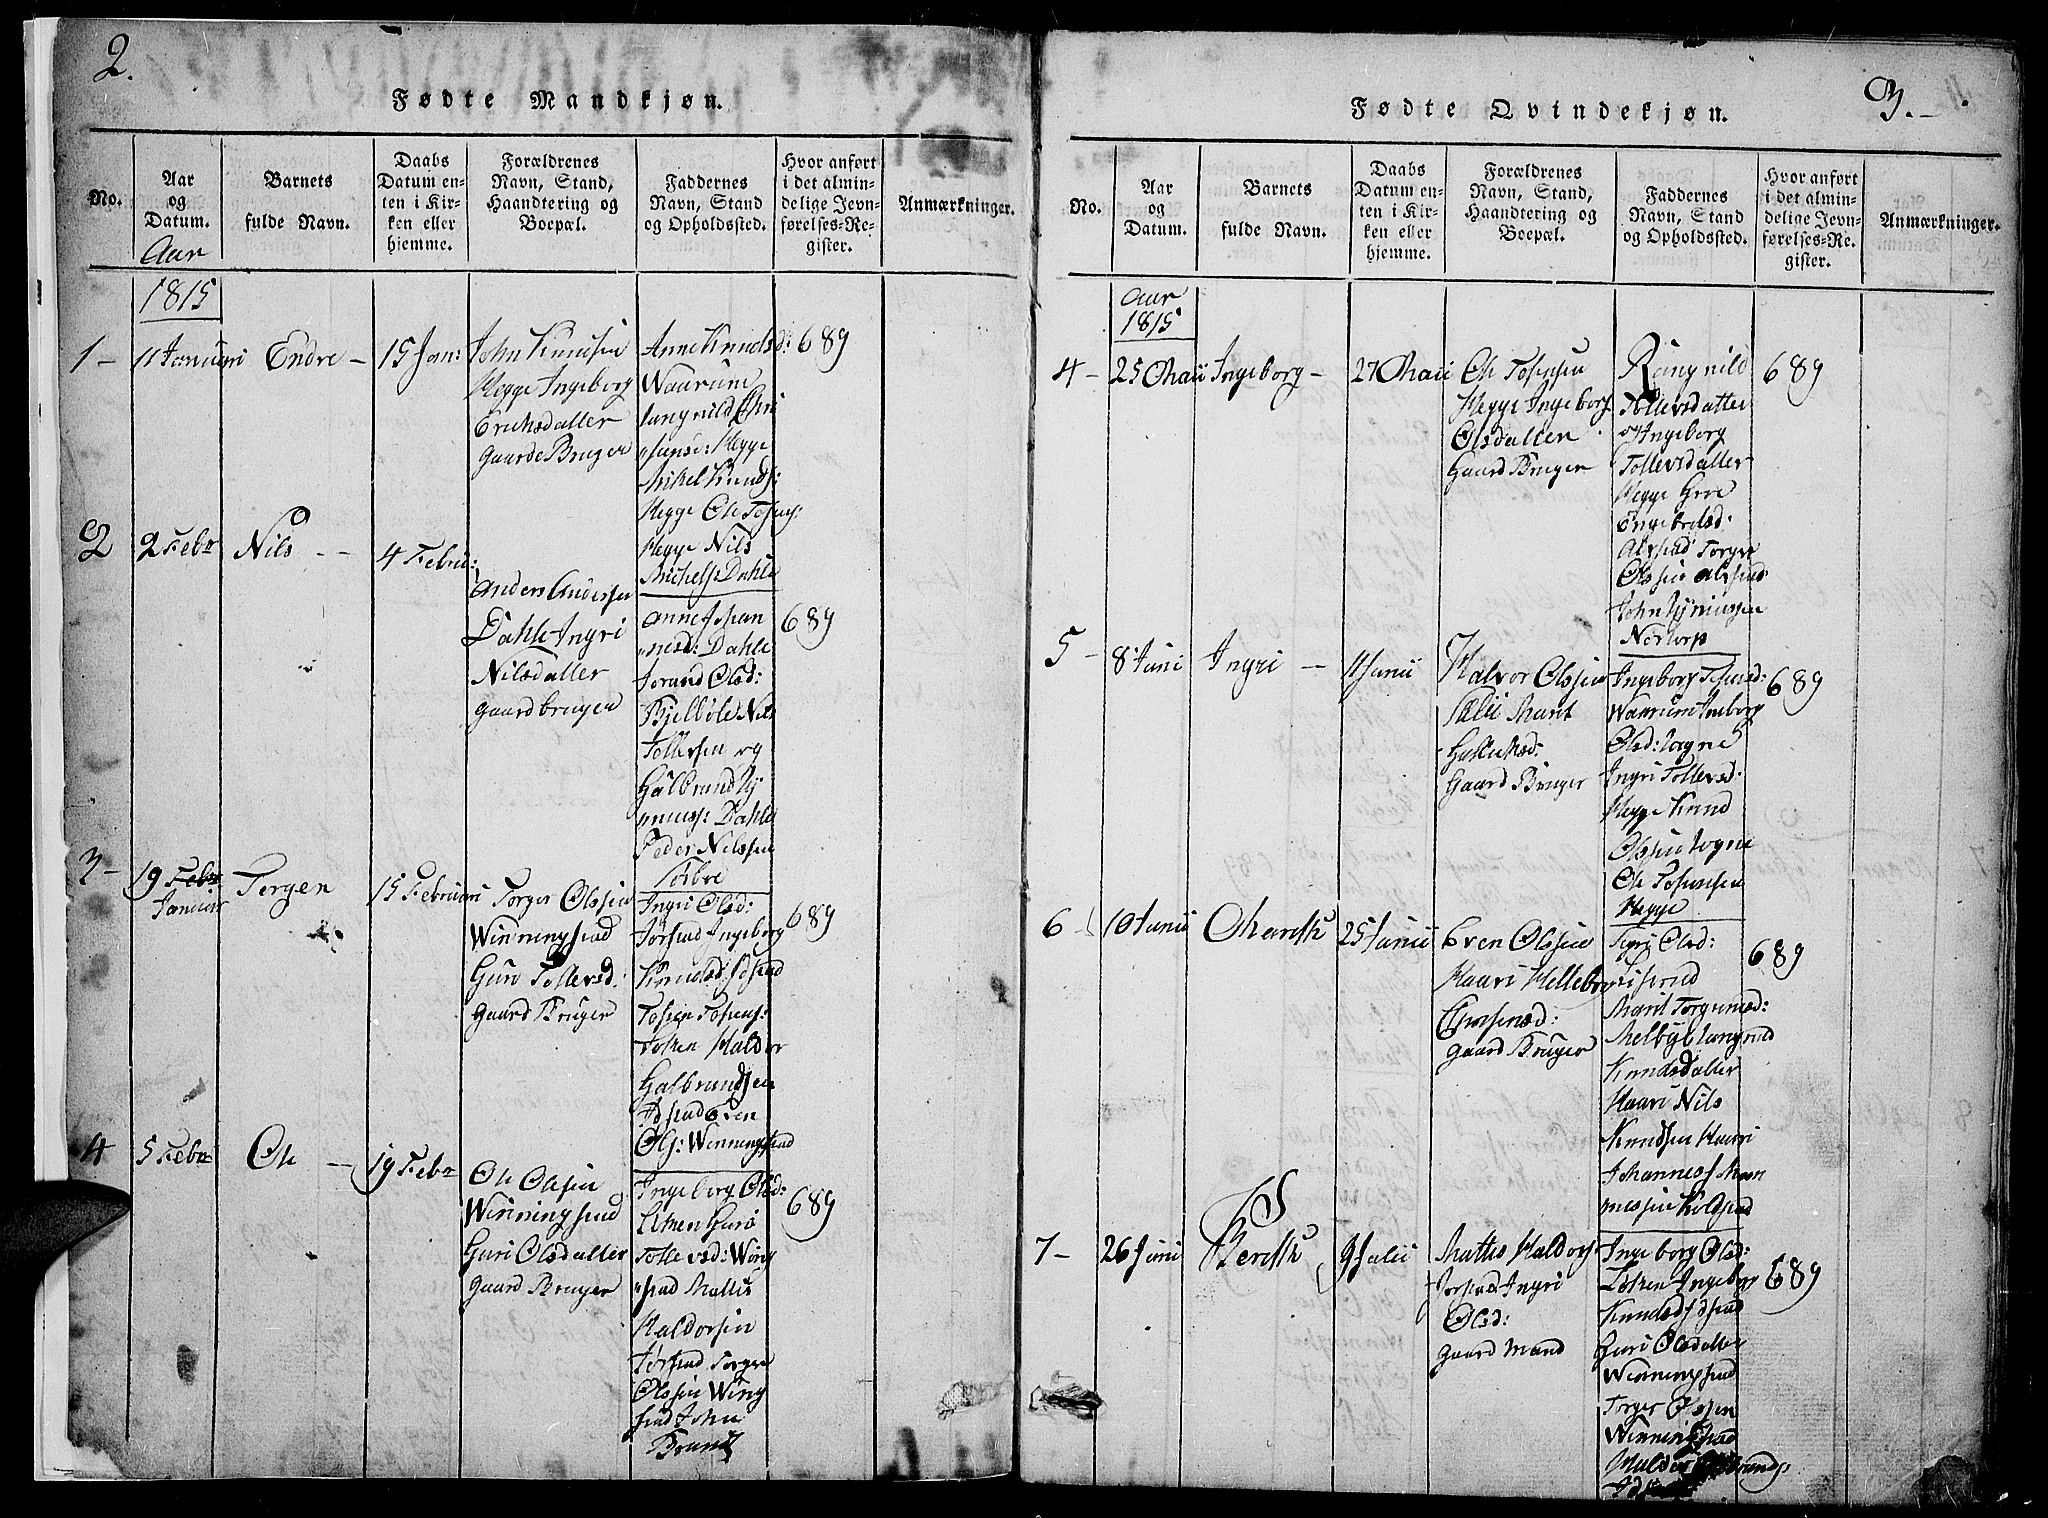 2.
Fødte Mandkjøn.
No.
Aar
og
Datum.
Barnets
fulde Navn.
Daabs
Datum en-
ten i Kir-
ken eller
hjemme.
Forældrenes
Navn, Stand,
Haandtering og
Boepæl.
Faddernes
Navn, Stand
og Opholdssted.
Hvor anført
i det almin-
delige Jevn-
førelses-Re-
gister.
Anmærkninger.
Aar
1815
1 -
11 Januari
Endre -
15 Jan:
John Knudsen
Hegge Ingeborg
Erichsdatter
Gaard Bruger
Anne Knudsd:
Waarum
Hegge
Mikel Knuds:
Hegge Ole Tostens
Hegge Nils
Michels: Dahle
689
2
2 Febr
Nils - -
4 Febru:
Anders Andersen
Dahle Ingri
Nilsdatter
Gaard bruger
Anne Johan
nesd: Dahle
Jorand Olsd:
Kjelbøle Nils
Tollefsen og
Gulbrand
Dahle
Peder Nilssen
689
3 -
19 Febr
Januar
Torgen
15 Februari
Torger Olssen
Winningstad
Guro Tollevsd:
Gaard Bruger
Ingri Olsd:
Jørstad Ingeborg
Knudsd:
Tosten Tostens:
Løken Haldor
Gulbrandsen
Ols: Winningstad
689
4
5 Febr
Ole -
19 Febr
Ole Olssen
Winningstad
Guri Olsdatter
Gaard Bruger
Ingeborg Olsd:
Løken Guro
Tollevsd: Wing
stad Mattis
Haldorsen
Jørstad Torger
Olssen Wing
stad John
Brand
689
3.
Fødte Qvindekjøn.
No.
Aar
og
Datum.
Barnets
fulde Navn.
Daabs
Datum en-
ten i Kir-
ken eller
hjemme.
Forældrenes
Navn, Stand,
Haandtering og
Boepæl.
Faddernes
Navn, Stand
og Opholdssted.
Hvor anført
i det almin-
delige Jevn-
førelses-Re-
gister.
Anmærkninger.
Aar
1815
4 -
25 Maii
Ingeborg -
27 Maii
Ole Tostensen
Hegge Ingeborg
Olsdatter
Gaard Bruger
Rangnild
Tollevsdatter
og Ingeborg
Tollevsdatter
Hegge
Engebretsd:
Alfstad Torger
Olssen Alfstad
John
Nortorp
689
5 -
8 Juni
Ingri -
11 Junii
Halvor Olssen
Marit
Gaard Bruger
Ingeborg Tostensd:
Waarum
Olsd: Logne
Ingri Tollevsd:
Hegge Knud
Olssen Logne
Ole Tostensen
Hegge
689
6 -
10 Junii
Marith
25 Junii
Even Olssen
Haari Helleborg
Gaard Bruger
Olsd:
Marit Torgersd:
Melbye
Knudsdatter
Haari Nils
Knudsen Haari
Johannes
689
7 -
26 Juni
Berith
9 Julii
Mattis Haldors
Jørstad Ingri
Olsd:
Gaard Mand
Ingeborg Olsd:
Løken Ingeborg
Knudsd
Guri Olsdatter
Winningstad
Torger Olssen
Winningstad
Haldor
689